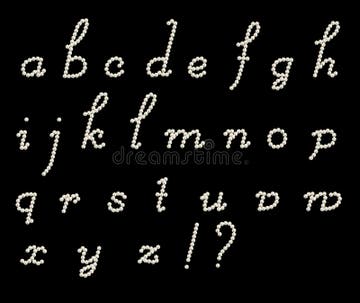 a b c d e f g h
i j k l m n o p
q r s t u v w
x y z ! ?
dreamstime